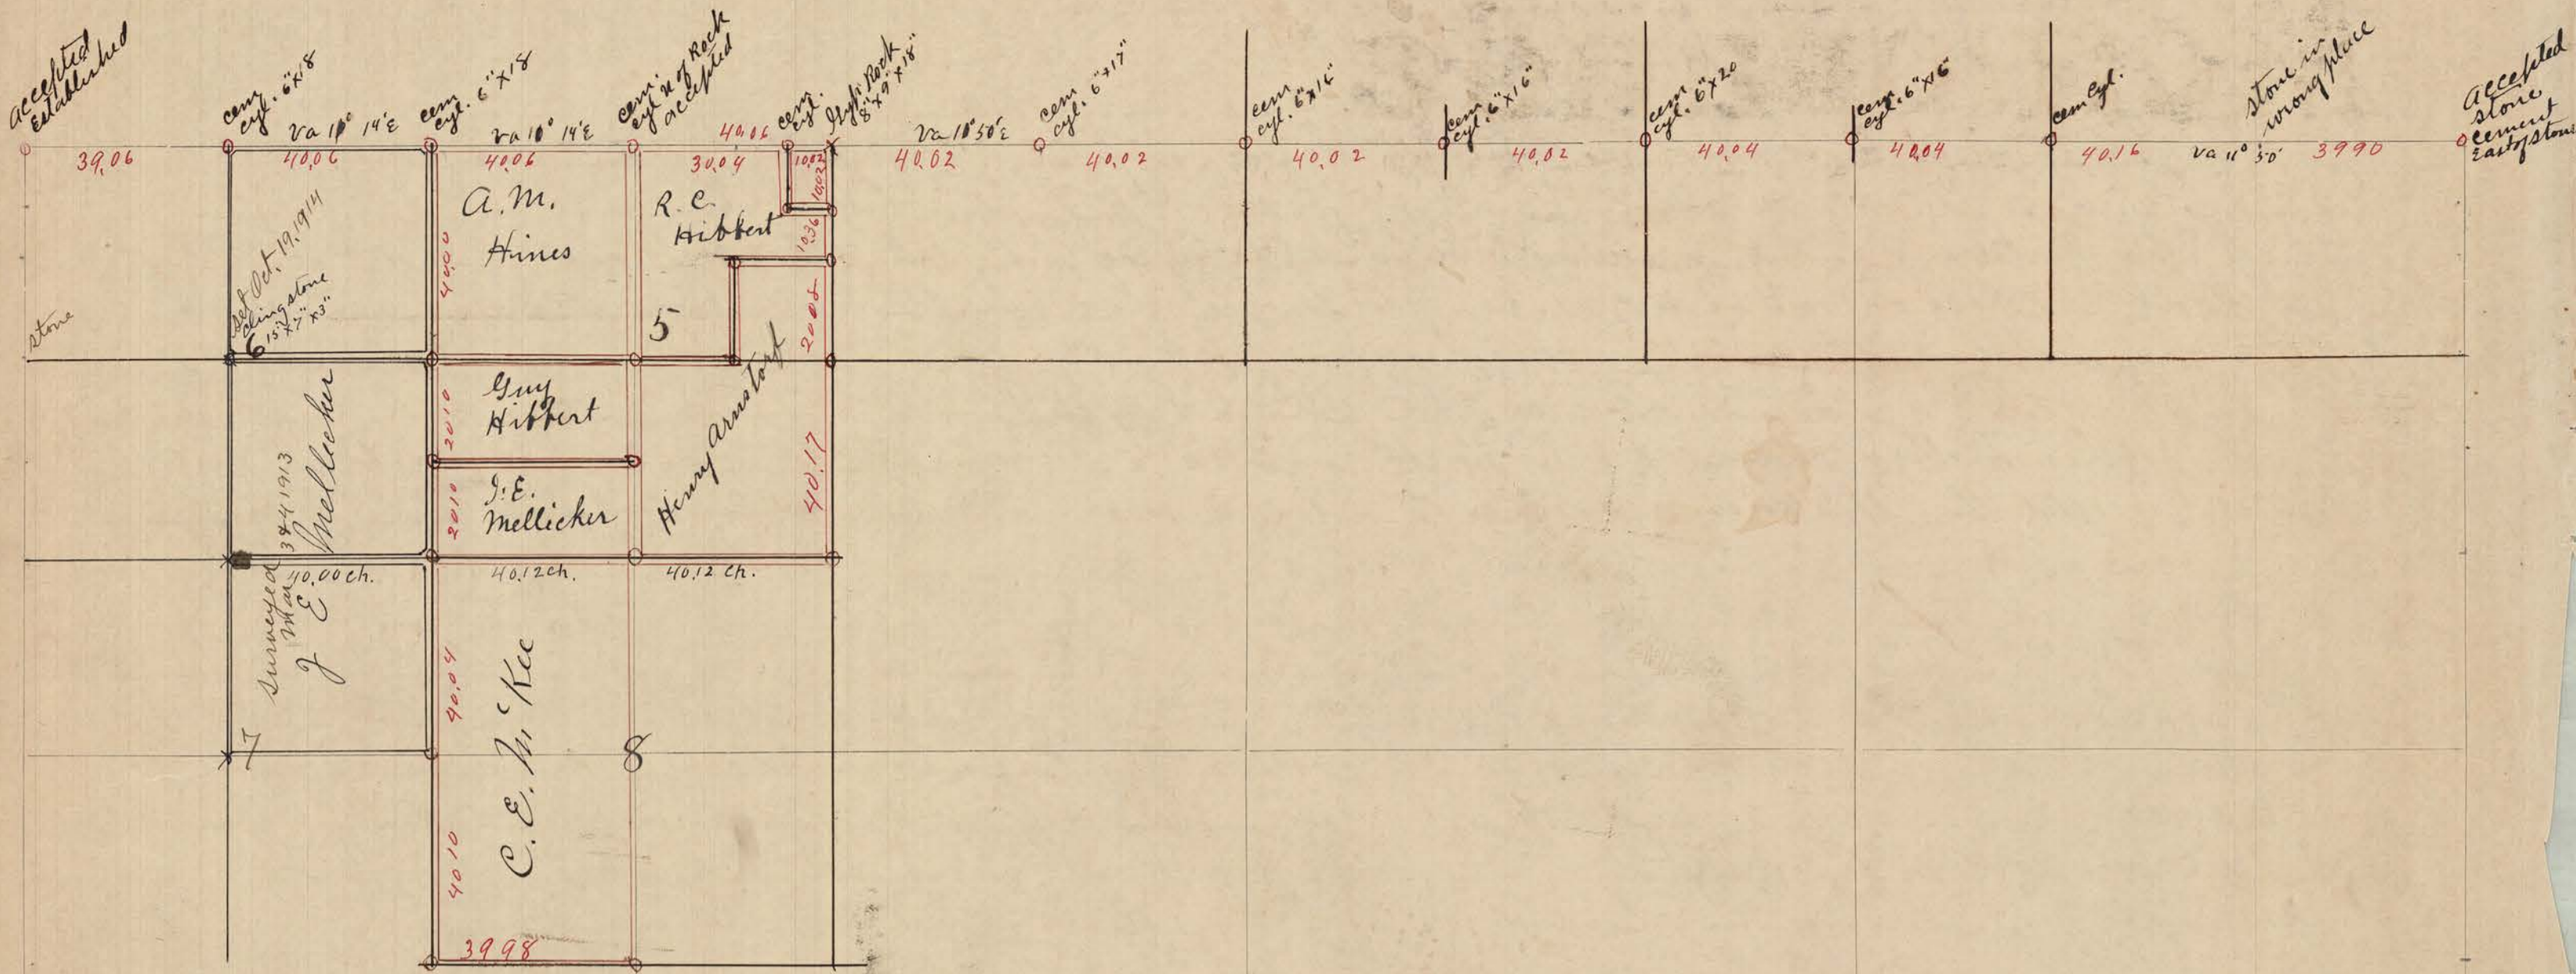 accepted
established
cem
cyl. 6"x18
cem
cyl. 6"x18
cem.
cyl N of Rock
accepted
cem.
cyl.
Rock
8"x9"x18"
cem
cyl. 6"x17"
cem
cyl. 6"x16"
cem
cyl. 6"x16"
cem
cyl. 6"x20
cem
cyl. 6"x16"
cem cyl.
stone in
wrong place
accepted
stone
cement
East of stone
Va 10° 14'E
Va 10° 14'E
40.06
Va 10° 50'E
39.06
40.06
40.06
30.04
10.02
40.02
40.02
40.02
40.02
40.04
40.04
40.16
Va 11° 50'
3990
10.02
A. M.
Hines
R. C.
Hibbert
10.36
40.00
set Oct. 19, 1914
stone
15"x7"x3"
6
stone
5
2008
Guy
Hibbert
2010
Henry Arnstorf
40.17
J. E.
Mellicker
2010
surveyed
Mar 3 & 4 1913
J E Mellicker
40.00 ch.
40.12 ch.
40.12 ch.
40.04
C. E. McKee
7
8
4010
3998